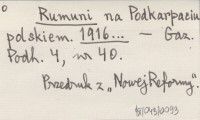 Rumuni na Podkarpaciu
polskiem. 1916... – Gaz.
Podh. 4, nr 40.
Przedruk z „Nowej Reformy".